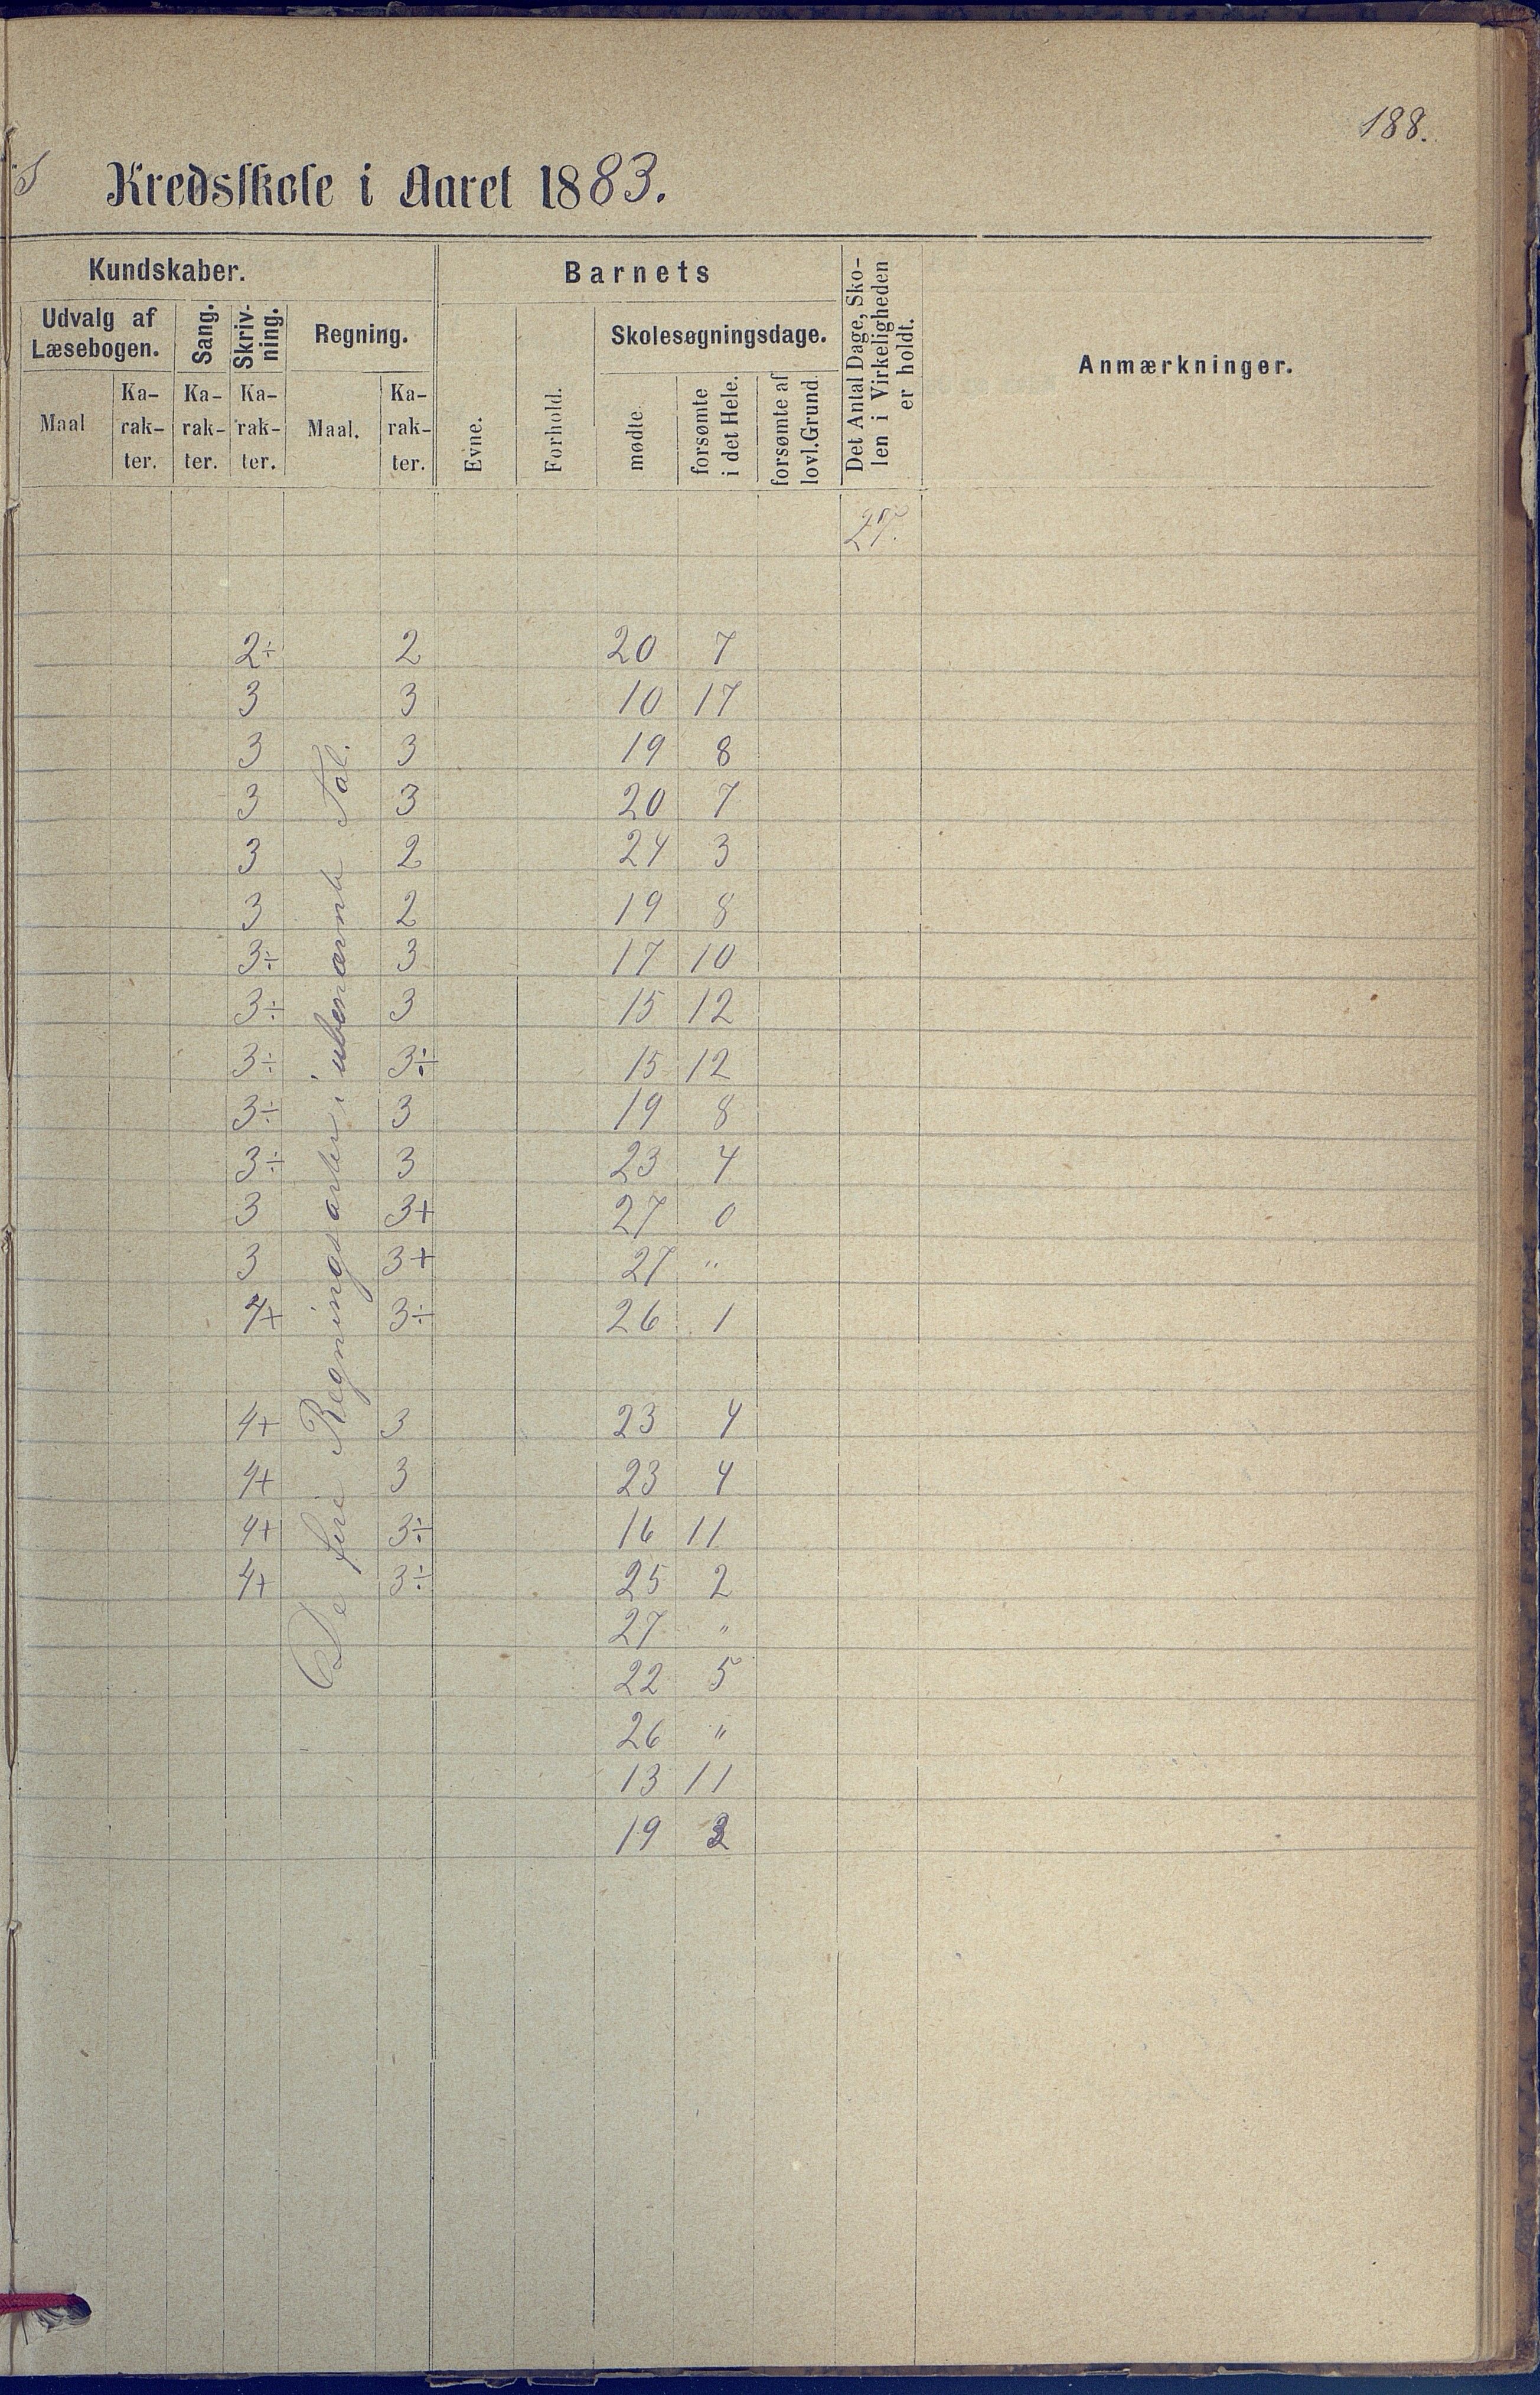 188.
s Kredsskole i Aaret 1883.
Kundskaber.
Barnets
Det Antal Dage, Sko-
len i Virkeligheden
er holdt.
Anmærkninger.
Udvalg af
Læsebogen.
Sang.
Skriv-
ning.
Regning.
Skolesøgningsdage.
Maal
Ka-
rak-
ter.
Ka-
rak-
ter.
Ka-
rak-
ter.
Maal.
Ka-
rak-
ter.
Evne.
Forhold.
mødte
forsømte
i det Hele.
forsømte af
lovl. Grund.
27.
De fire Regningsarter i ubenævnte Tal.
2÷ 2 20 7
3 3 10 17
3 3 19 8
3 3 20 7
3 2 24 3
3 2 19 8
3÷ 3 17 10
3÷ 3 15 12
3÷ 3÷ 15 12
3÷ 3 19 8
3÷ 3 23 4
3 3+ 27 0
3 3+ 27 "
4+ 3÷ 26 1
4+ 3 23 4
4+ 3 23 4
4+ 3÷ 16 11
4+ 3÷ 25 2
27 "
22 5
26 "
13 11
19